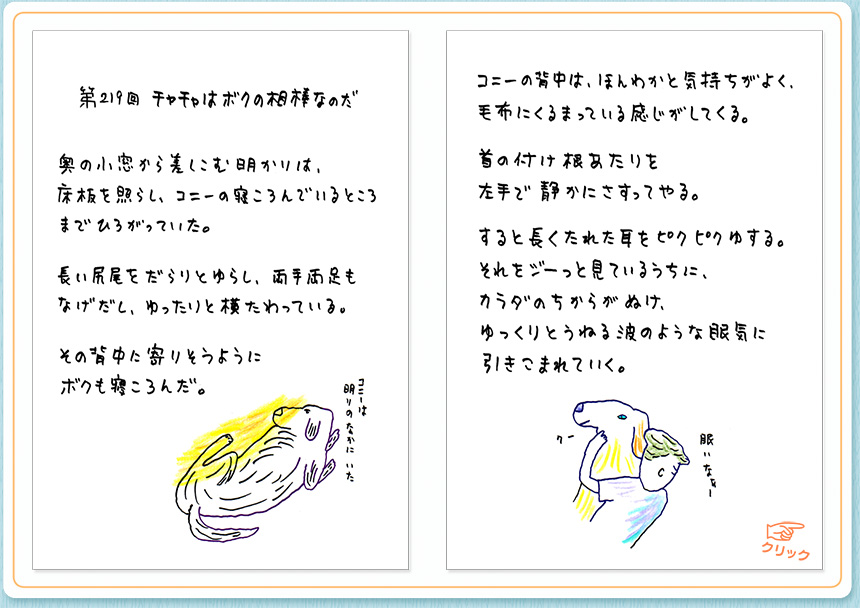 第219回 チャチャはボクの相棒なのだ
奥の小窓から差しこむ明かりは、
床板を照らし、コニーの寝ころんでいるところ
までひろがっていた。
長い尻尾をだらりとゆらし、両手両足も
なげだし、ゆったりと横たわっている。
その背中に寄りそうように
ボクも寝ころんだ。
コニーは
明りのなかに いた
コニーの背中は、ほんわかと気持ちがよく、
毛布にくるまっている感じがしてくる。
首の付け根あたりを
左手で静かにさすってやる。
すると長くたれた耳をピクピクゆする。
それをジーっと見ているうちに、
カラダのちからがぬけ、
ゆっくりとうねる波のような眠気に
引きこまれていく。
クー
眠いなぁー
クリック